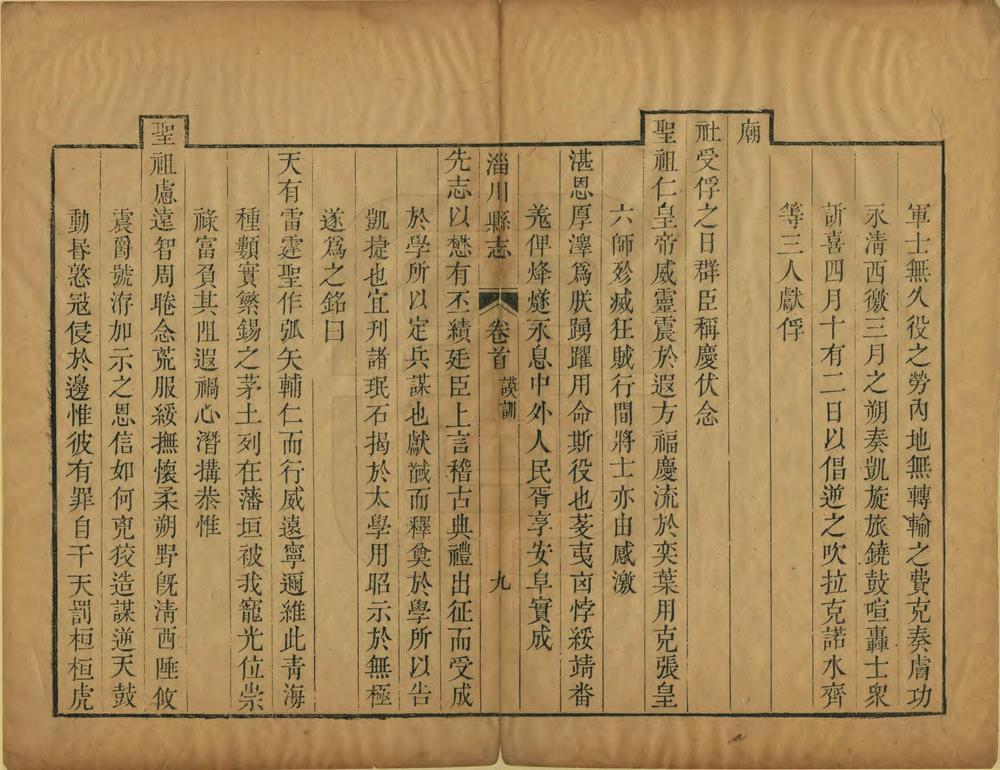 軍士無久役之勞內地無轉輸之費克奏膚功
永清西徼三月之朔奏凱旋旅鐃鼓喧轟士衆
訢喜四月十有二日以倡逆之吹拉克諾水齊
等三人獻俘
廟
社受俘之日群臣稱慶伏念
聖祖仁皇帝威靈震於遐方福慶流於奕葉用克張皇
六師殄滅狂賊行間將士亦由感激
湛恩厚澤爲朕踴躍用命斯役也芟夷凶悖綏靖番
羗俾烽燧永息中外人民胥享安阜實成
淄川縣志 卷首 謨訓 九
先志以懋有丕績廷臣上言稽古典禮出征而受成
於學所以定兵謀也獻馘而釋奠於學所以告
凱捷也宜刋諸珉石揭於太學用昭示於無極
遂爲之銘曰
天有雷霆聖作弧矢輔仁而行威遠寧邇維此青海
種類實蘩錫之茅土列在藩垣被我寵光位崇
祿富負其阻遐禍心潛搆恭惟
聖祖慮遠智周睠念荒服綏撫懷柔朔野旣清西陲攸
震爵號洊加示之恩信如何兇狡造謀逆天鼓
動昬憝寇侵於邊惟彼有罪自干天罰桓桓虎